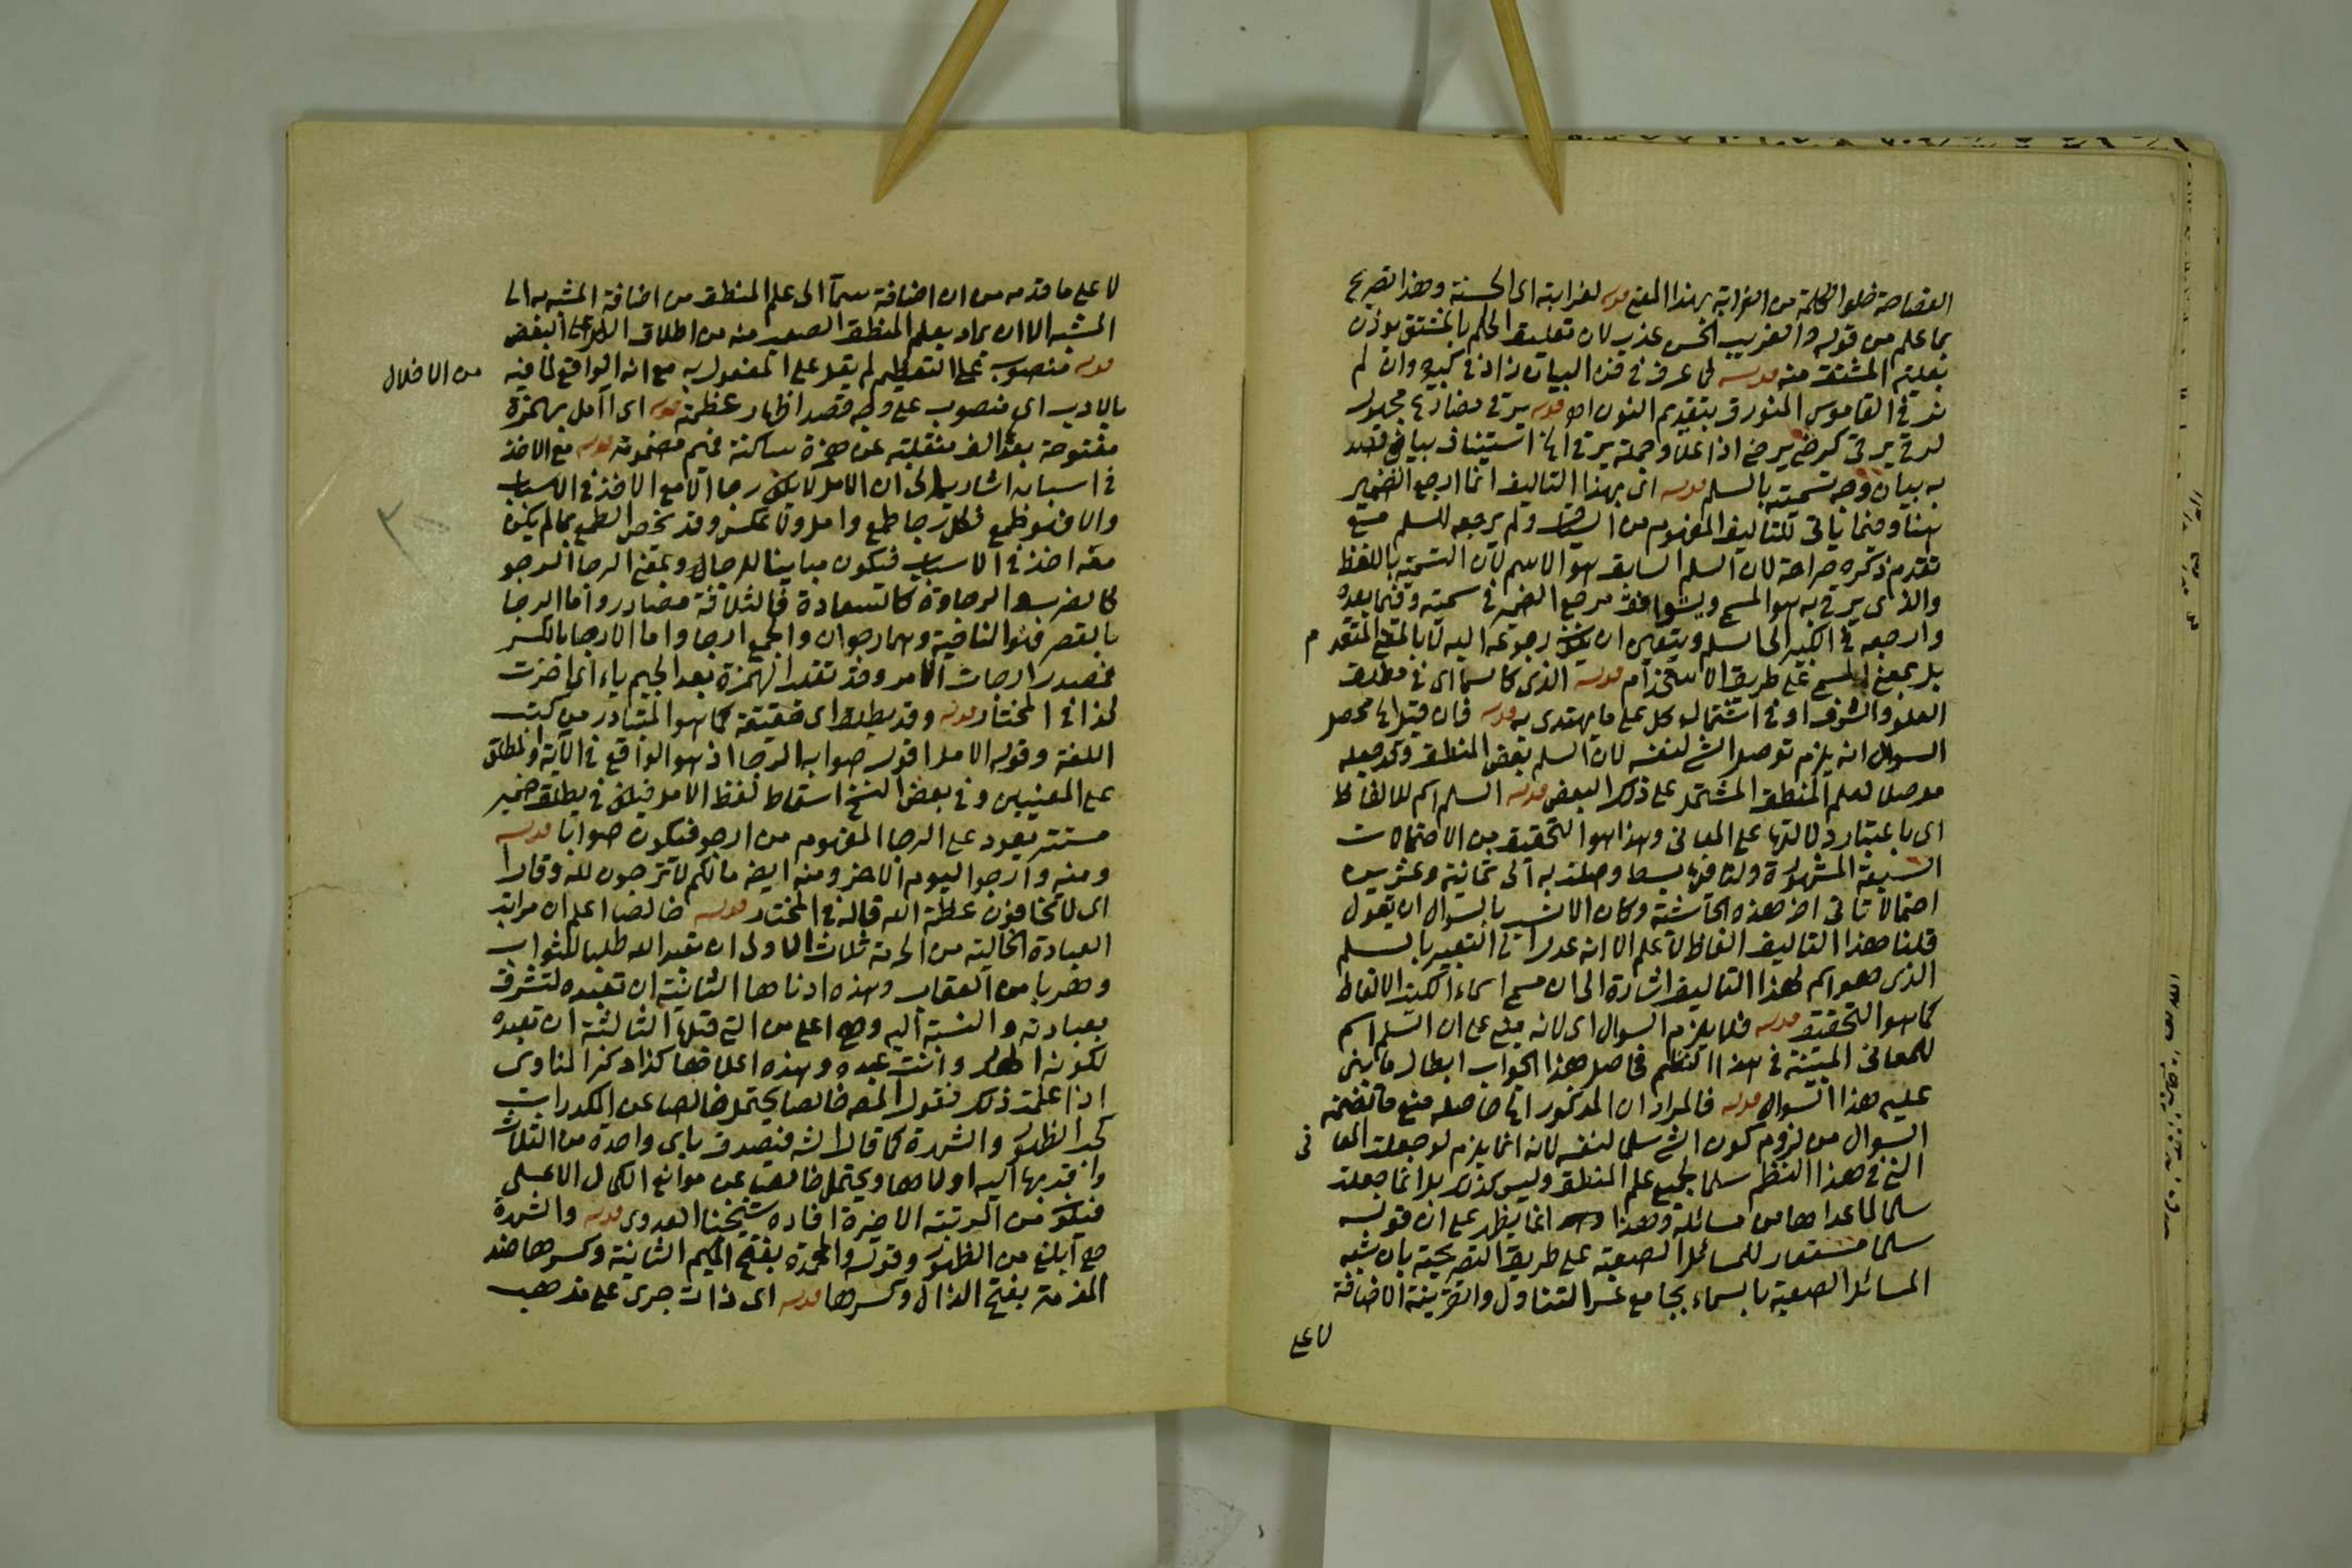 الفصاحة خلو الكلمة من الغرابة بهذا المعنى قوله لغرابته اى الحسنة وهذا تصريح
بما علم من قوله والغريب الحسن عذب لان تعليق الحكم بالمشتق يوذن
بعلية المشتق منه قوله لما عرف في فن البيان زاد في كبيره وان لم
في القاموس بتقديم النون اه قوله يرقى مضارع مجهول
لرقى يرقى كرضى يرضى اذا علا وجملة يرقى الخ استيناف بيانى قصد
به بيان وجه تسميته بالسلم قوله اى بهذا التاليف انما ارجع الضمير
هنا وفيما ياتى للتاليف المفهوم من السياق ولم يرجعه للسلم مع
تقدم ذكره صراحة لان السلم السابق هو الاسم لان التسمية باللفظ
والذى يرقى به هو المسمى وليتوافق مرجع الضمير في سميته وفيما بعده
وارجعه في الكبير الى السلم ويتعين ان يكون رجوعه اليه لا بالمعنى المتقدم
بل بمعنى المسمى على طريق الاستخدام قوله الذى كالسما اى في مطلق
العلو والشرف او في اشتمال كل على ما يهتدى به قوله فان قيل الخ محصل
السوال انه يلزم توصل الشى لنفسه لان السلم بعض المنطق وقد جعله
موصلا لعلم المنطق المشتمل على ذلك البعض قوله السلم اسم للالفاظ
اى باعتبار دلالتها على المعانى وهذا هو التحقيق من الاحتمالات
السبعة المشهورة ولنا فيها بسط وصلت به الى ثمانية وعشرين
احتمالا تاتى اخر هذه الحاشية وكان الانسب بالسوال ان يقول
قلنا هذا التاليف الفاظ لا علم الا انه عدل الى التعبير بالسلم
الذى هو اسم لهذا التاليف اشارة الى ان مسمى اسماء الكتب الالفاظ
كما هو التحقيق قوله فلا يلزم السوال اى لانه مبنى على ان السلم اسم
للمعانى المبينة في هذا النظم فحاصل هذا الجواب ابطال ما بنى
عليه هذا السوال قوله فالمراد ان المذكور الخ حاصله منع ما تضمنه
السوال من لزوم كون الشى سلما لنفسه لانه انما يلزم لو جعلت المعانى
التى في هذا النظم سلما لجميع علم المنطق وليس كذلك بل انما جعلت
سلما لما عداها من مسائله وهذا انما يظهر على ان قوله
سلما مستعار للمسائل الصعبة على طريق التصريحية بان شبه
المسائل الصعبة بالسماء بجامع عسر التناول والقرينة الاضافة
لا على
لا على ما قدمه من ان اضافة سما الى علم المنطق من اضافة المشبه به الى
المشبه الا ان يراد بعلم المنطق الصعب منه من اطلاق الكل على البعض
قوله منصوب على التعظيم لم يقل على المفعول به مع انه الواقع لما فيه
من الاخلال
بالادب اى منصوب على وجه قصد اظهار عظمته قوله اى آمل بهمزة
مفتوحة بعدها الف منقلبة عن همزة ساكنة فميم مضمومة قوله مع الاخذ
في اسبابه اشار به الى ان الامل لا يكون رجا الا مع الاخذ في الاسباب
والا فهو طمع فكل رجا طمع وامل ولا عكس وقد يخص الطمع بما لم يكن
معه اخذ في الاسباب فيكون مباينا للرجا وبمعنى الرجا الرجو
والرجاوة كالسعادة فالثلاثة مصادر واما الرجا
بالقصر فهو الناحية وهما رجوان والجمع ارجا واما الارجا بالكسر
فمصدر ارجات الامر وقد تقلب الهمزة بعد الجيم ياء اى اخرت
كذا في المختار قوله وقد يطلق اى حقيقة كما هو المتبادر من كتب
اللغة وقوله الامل اقول صوابه الرجا اذ هو الواقع في الآية والمطلق
على المعنيين وفي بعض النسخ اسقاط لفظ الامل فيكون في يطلق ضمير
مستتر يعود على الرجا المفهوم من ارجو فيكون صوابا قوله
ومنه وارجوا اليوم الاخر ومنه ايضا ما لكم لا ترجون لله وقارا
اى لا تخافون عظمة الله قاله في المختار قوله خالصا اعلم ان مراتب
العبادة الخالية من الحرمة ثلاث الاولى ان تعبد الله طلبا للثواب
وهربا من العقاب وهذه ادناها الثانية ان تعبده لتشرف
بعبادته والنسبة اليه وهى اعلى من التى قبلها الثالثة ان تعبده
لكونه الهك وانت عبده وهذه اعلاها كذا ذكر المناوى
اذا علمت ذلك فقول المصـ خالصا يحتمل خالصا عن المكدرات
كحب الظهور والشهرة كما قال الشـ فيصدق باى واحدة من الثلاث
ويحتمل خالصا عن موانع الكمال الاعلى
فيكون من المرتبة الاخيرة افاده شيخنا العدوى قوله والشهرة
هى ابلغ من الظهور وقوله والمحمدة بفتح الميم الثانية وكسرها ضد
المذمة بفتح الذال وكسرها قوله اى ذات جرى على مذهب